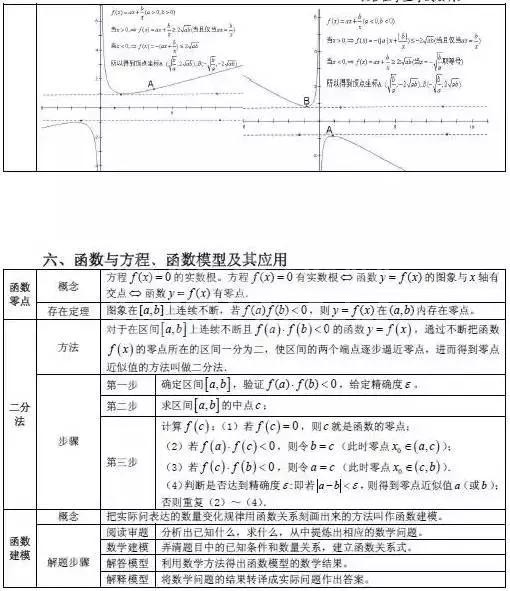 f(x)=ax+b/x(a>0,b>0)
当x>0,⇒f(x)=ax+b/x≥2√ab(当且仅当ax=b/x)
所以得到顶点坐标A
A
f(x)=ax+b/x(a<0,b<0)
所以得到顶点坐标A
B
A
六、函数与方程、函数模型及其应用
函数零点
概念
方程f(x)=0的实数根。方程f(x)=0有实数根⇔函数y=f(x)的图象与x轴有
交点⇔函数y=f(x)有零点.
存在定理
图象在[a,b]上连续不断，若f(a)f(b)<0，则y=f(x)在(a,b)内存在零点。
二分法
方法
对于在区间[a,b]上连续不断且f(a)·f(b)<0的函数y=f(x)，通过不断把函数
f(x)的零点所在的区间一分为二，使区间的两个端点逐步逼近零点，进而得到零点
近似值的方法叫做二分法.
步骤
第一步
确定区间[a,b]，验证f(a)·f(b)<0，给定精确度ε。
第二步
求区间[a,b]的中点c；
第三步
计算f(c)；（1）若f(c)=0，则c就是函数的零点；
（2）若f(a)·f(c)<0，则令b=c（此时零点x₀∈(a,c)）；
（3）若f(c)·f(b)<0，则令a=c（此时零点x₀∈(c,b)）.
（4）判断是否达到精确度ε:即若|a−b|<ε，则得到零点近似值a（或b）；
否则重复（2）～（4）.
函数建模
概念
把实际问表达的数量变化规律用函数关系刻画出来的方法叫作函数建模。
解题步骤
阅读审题
分析出已知什么，求什么，从中提炼出相应的数学问题。
数学建模
弄清题目中的已知条件和数量关系，建立函数关系式。
解答模型
利用数学方法得出函数模型的数学结果。
解释模型
将数学问题的结果转译成实际问题作出答案。